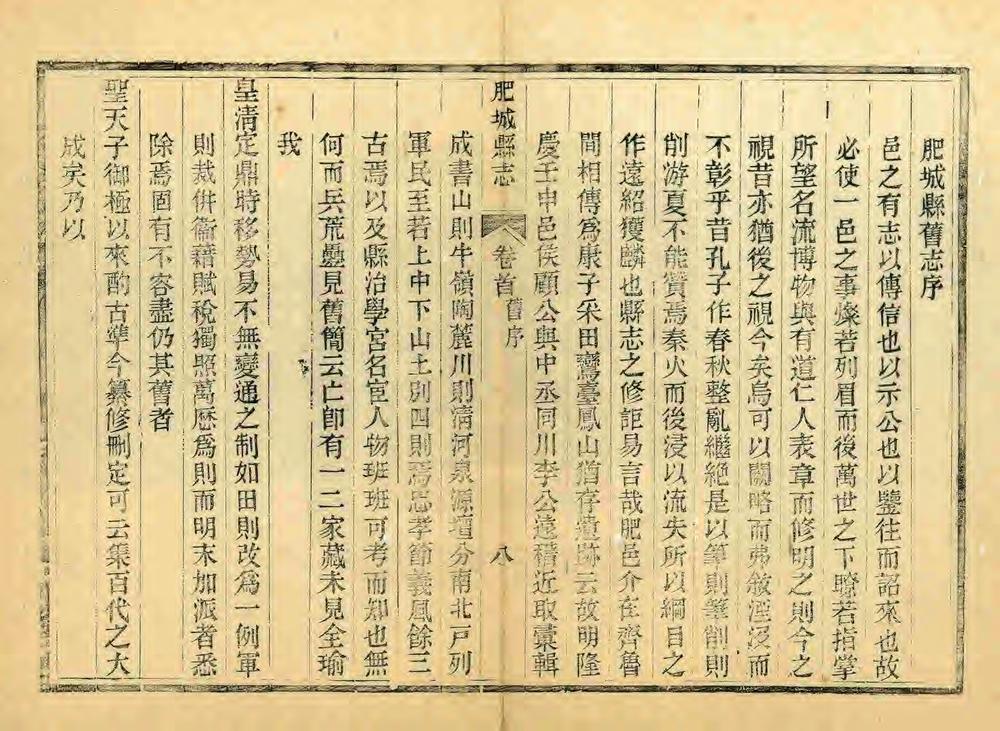 肥城縣舊志序
邑之有志以傳信也以示公也以鑒往而詔來也故
必使一邑之事燦若列眉而後萬世之下瞭若指掌
所望名流博物與有道仁人表章而修明之則今之
視昔亦猶後之視今矣烏可以闕略而弗敘湮沒而
不彰乎昔孔子作春秋整亂繼絕是以筆則筆削則
削游夏不能贊焉秦火而後浸以流失所以綱目之
作遠紹獲麟也縣志之修詎易言哉肥邑介在齊魯
間相傳為康子采田鸞臺鳳山猶存遺跡云故明隆
慶壬申邑侯顧公與中丞同川李公遠稽近取彙輯
肥城縣志 卷首 舊序 八
成書山則牛嶺陶麓川則清河泉源壇分南北戶列
軍民至若上中下山土別四則焉忠孝節義風餘三
古焉以及縣治學宮名宦人物班班可考而知也無
何而兵荒疊見舊簡云亡卽有一二家藏未見全瑜
我
皇清定鼎時移勢易不無變通之制如田則改為一例軍
則裁併衞藉賦稅獨照萬歷為則而明末加派者悉
除焉固有不容盡仍其舊者
聖天子御極以來酌古準今纂修刪定可云集百代之大
成矣乃以